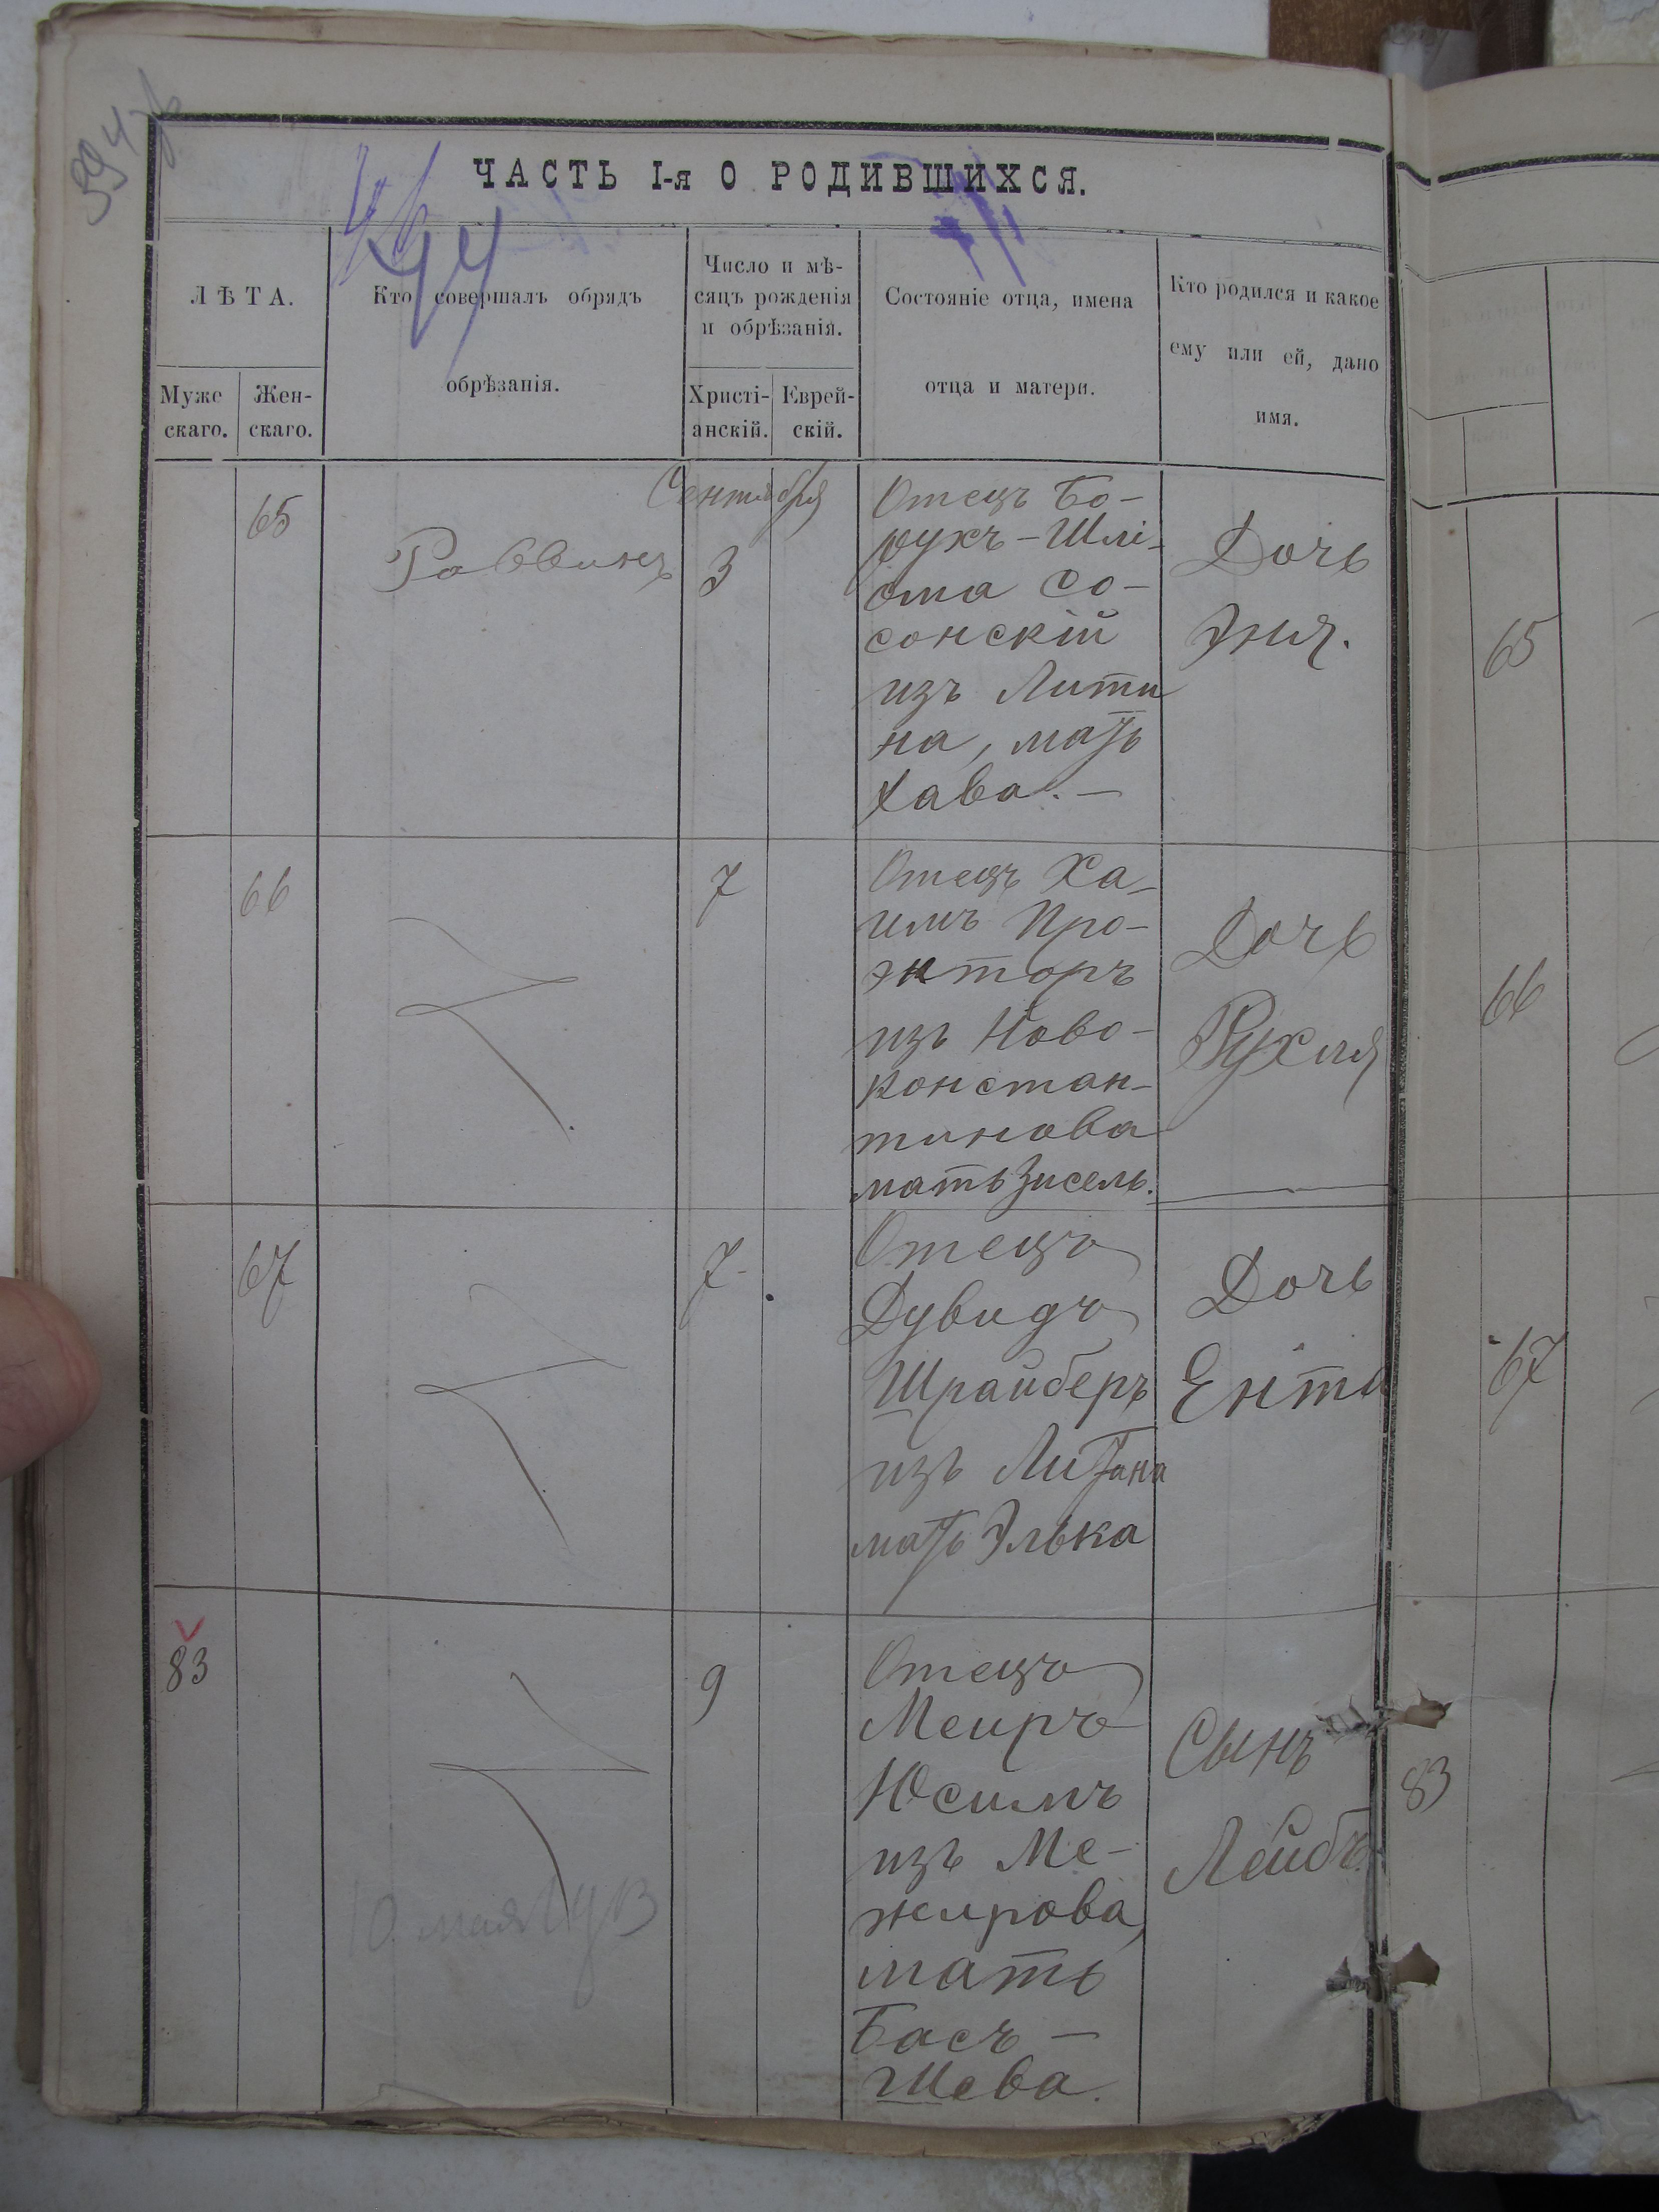 ЧАСТЬ I-я О РОДИВШИХСЯ.
ЛѢТА.
Муже
скаго.
Жен-
скаго.
Кто совершалъ обрядъ
обрѣзанія.
Число и мѣ-
сяцъ рожденія
и обрѣзанія.
Христі-
анскій.
Еврей-
скій.
Состояніе отца, имена
отца и матери.
Кто родился и какое
ему или ей, дано
имя.
Сентября
65
Раввинъ
3
Отецъ Бо-
рухъ-Шлі-
ома Со-
сонскій
изъ Лити
на, мать
Хава. —
Дочь
Эня.
65
66
7
Отецъ Ха-
имъ Про-
экторъ
изъ Ново-
Констан-
тинова
мать Зисель.
Дочь
Рухля
66
67
7
Отецъ
Дувидъ
Шрайберъ
изъ Литина
мать Элька
Дочь
Ента
67
83
9
Отецъ
Меиръ
Юсимъ
изъ Ме-
жирова,
мать
Бась —
Шева.
Сынъ
Лейбъ
83
10 мая